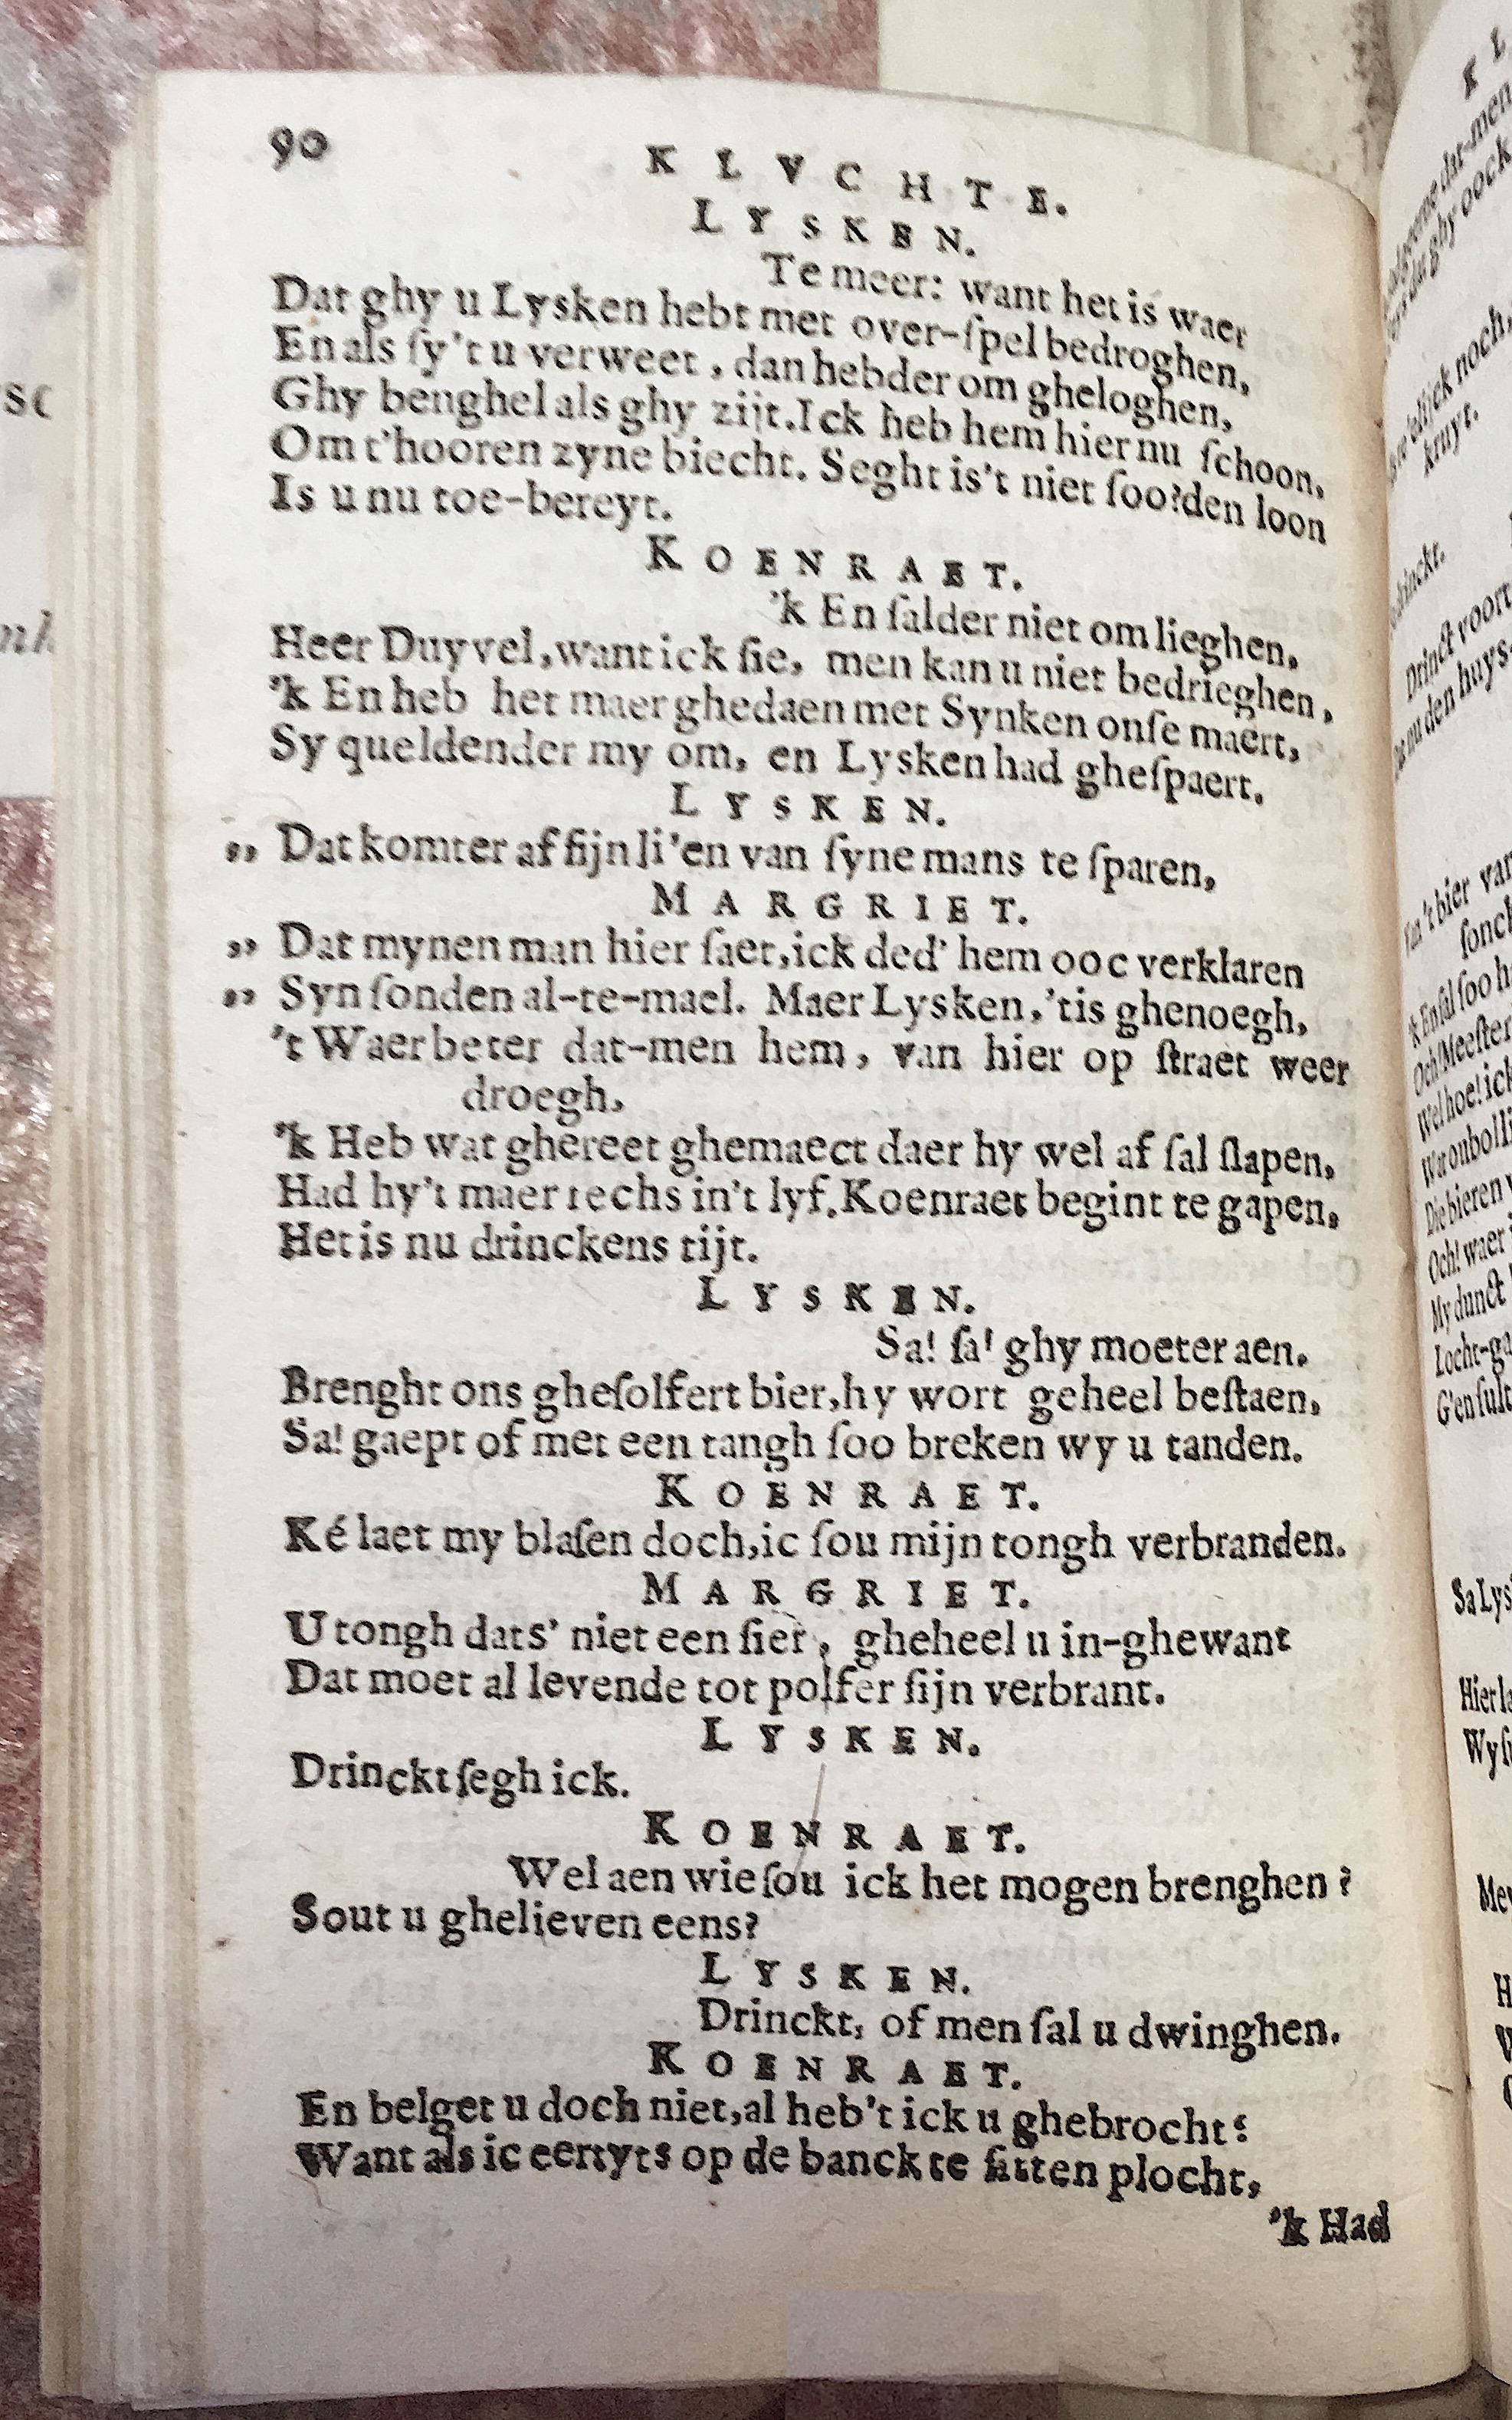 90
KLVCHTE.
LYSKEN.
Te meer: want het is waer
Dat ghy u Lysken hebt met over-ſpel bedroghen,
En als ſy't u verweet, dan hebder om gheloghen,
Ghy benghel als ghy zijt. Ick heb hem hier nu ſchoon,
Om t'hooren zyne biecht. Seght is't niet ſoo? den loon
Is u nu toe-bereyt.
KOENRAET.
'k En ſalder niet om lieghen,
Heer Duyvel, want ick ſie, men kan u niet bedrieghen,
'k En heb het maer ghedaen met Synken onſe maert,
Sy queldender my om, en Lysken had gheſpaert.
LYSKEN.
,, Dat komter af ſijn li'en van ſyne mans te ſparen,
MARGRIET.
,, Dat mynen man hier ſaet, ick ded' hem ooc verklaren
,, Syn ſonden al-te-mael. Maer Lysken, 'tis ghenoegh,
't Waer beter dat-men hem, van hier op ſtraet weer
droegh,
'k Heb wat ghereet ghemaect daer hy wel af ſal ſlapen,
Had hy't maer rechs in't lyf. Koenraet begint te gapen,
Het is nu drinckens tijt.
LYSKEN.
Sa! ſa! ghy moeter aen.
Brenght ons gheſolfert bier, hy wort geheel beſtaen,
Sa! gaept of met een tangh ſoo breken wy u tanden.
KOENRAET.
Ké laet my blaſen doch, ic ſou mijn tongh verbranden.
MARGRIET.
U tongh dats' niet een ſier, gheheel u in-ghewant
Dat moet al levende tot polfer ſijn verbrant.
LYSKEN.
Drinckt ſegh ick.
KOENRAET.
Wel aen wie ſou ick het mogen brenghen?
Sout u ghelieven eens?
LYSKEN.
Drinckt, of men ſal u dwinghen.
KOENRAET.
En belget u doch niet, al heb't ick u ghebrocht:
Want als ic eertyts op de banck te ſitten plocht,
'k Had